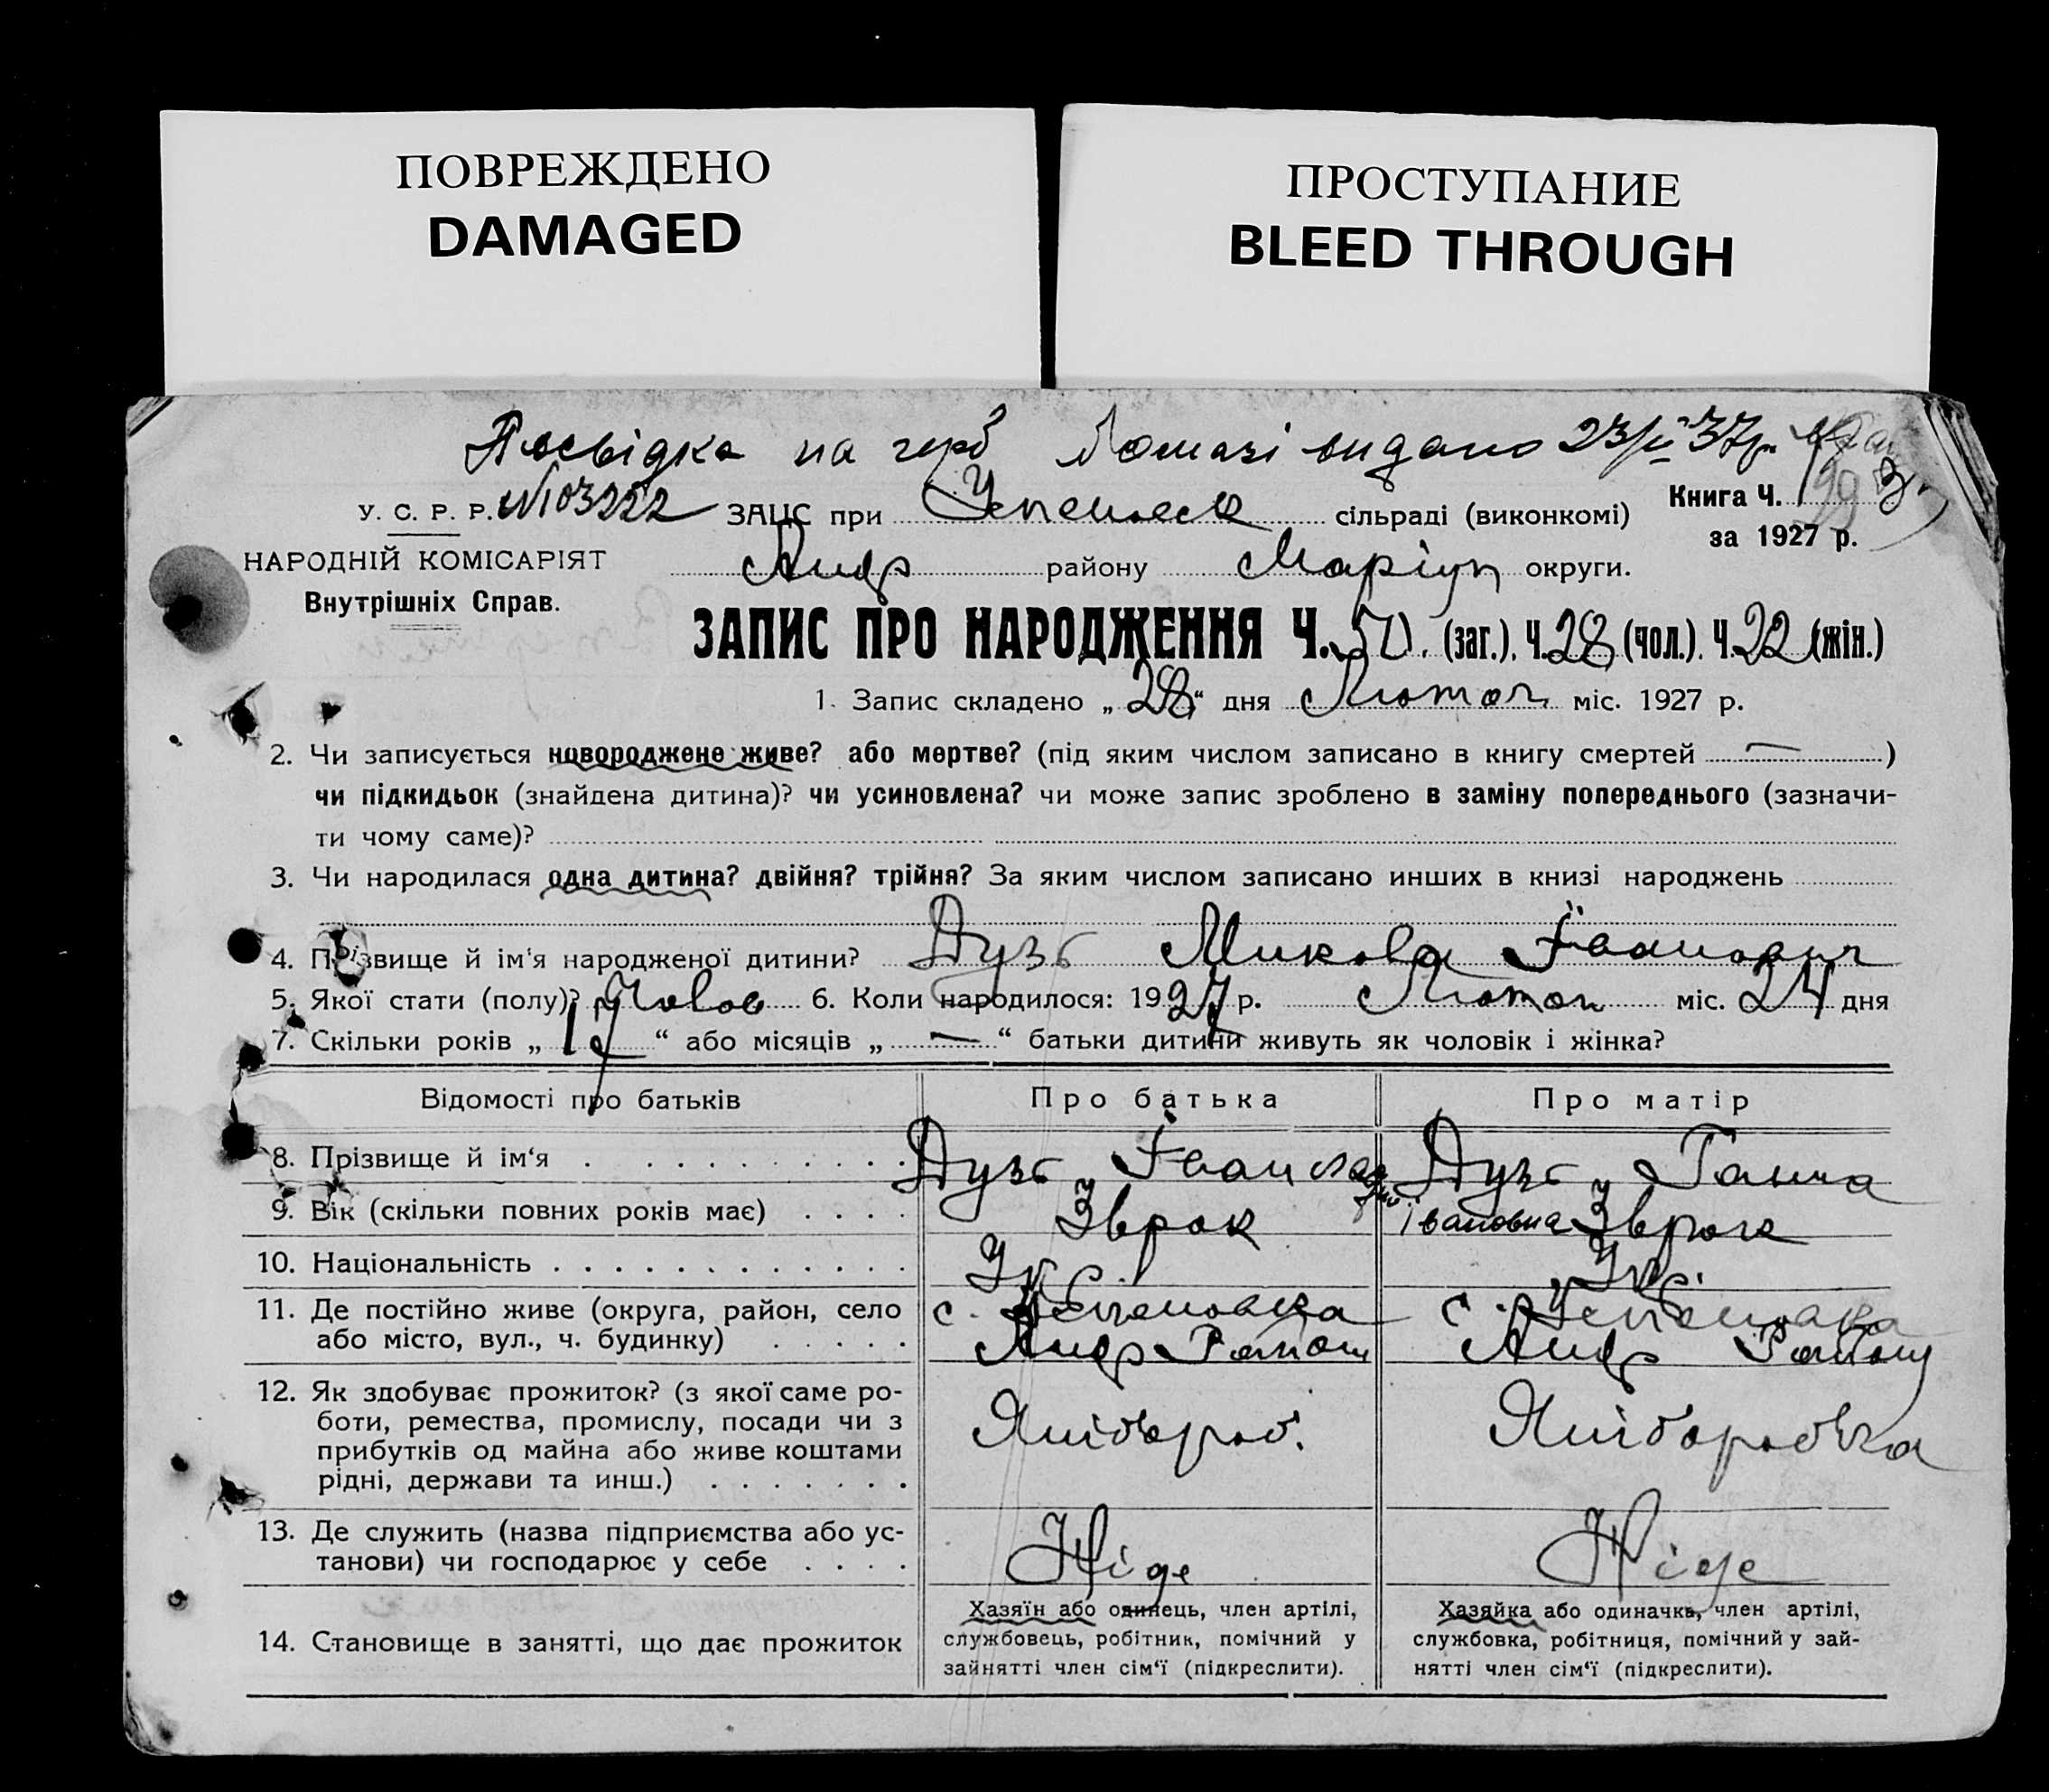 ПОВРЕЖДЕНО
DAMAGED
ПРОСТУПАНИЕ
BLEED THROUGH
Посвідка на герб видано 23/ 37р.
У. С. Р. Р. №103222 ЗАЦС при сільраді (виконкомі) Книга Ч.
за 1927 р.
НАРОДНІЙ КОМІСАРІЯТ Андр району Маріуп округи.
Внутрішніх Справ.
ЗАПИС ПРО НАРОДЖЕННЯ Ч. 50. (заг.). Ч. 28 (чол.). Ч. 22 (жін.)
1. Запис складено „28“ дня Лютого міс. 1927 р.
2. Чи записується новороджене живе? або мертве? (під яким числом записано в книгу смертей — )
чи підкидьок (знайдена дитина)? чи усиновлена? чи може запис зроблено в заміну попереднього (зазначи-
ти чому саме)?
3. Чи народилася одна дитина? двійня? трійня? За яким числом записано инших в книзі народжень
4. Прізвище й ім‘я народженої дитини? Дузь Микола Іванович
5. Якої стати (полу)? Чолов 6. Коли народилося: 1927 р. Лютого міс. 24 дня
7. Скільки років „ “ або місяців „ — “ батьки дитини живуть як чоловік і жінка?
Відомості про батьків Про батька Про матір
8. Прізвище й ім‘я Дузь Іван Дузь Ганна
9. Вік (скільки повних років має) рок Івановна
10. Національність Укр. Укр.
11. Де постійно живе (округа, район, село с. Успеновка с. Успеновка
або місто, вул., ч. будинку) Андр Району Андр Району
12. Як здобуває прожиток? (з якої саме ро-
боти, ремества, промислу, посади чи з Хлібороб. Хліборобка
прибутків од майна або живе коштами
рідні, держави та инш.)
13. Де служить (назва підприємства або ус-
танови) чи господарює у себе Ніде Ніде
14. Становище в занятті, що дає прожиток
Хазяїн або одинець, член артілі,
службовець, робітник, помічний у
зайнятті член сім‘ї (підкреслити).
Хазяйка або одиначка, член артілі,
службовка, робітниця, помічний у зай-
нятті член сім‘ї (підкреслити).